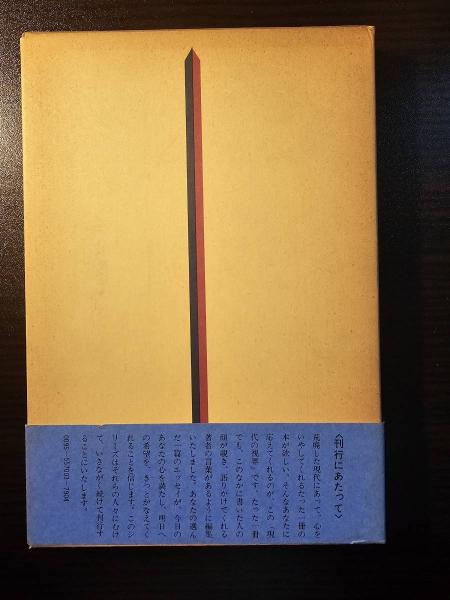 〈刊行にあたって〉
荒廃した現代にあって、心を
いやしてくれるたった一冊の
本が欲しい、そんなあなたに
応えてくれるのが、この「現
代の視界」です。たった一冊
でも、このなかに書いた人の
顔が覗き、語りかけてくれる
著者の言葉があるように編集
いたしました。あなたの選ん
だ一篇のエッセイが、今日の
あなたの心を満たし、明日へ
の希望を、きっとかなえてく
れることを信じます。このシ
リーズはそれらの人々にむけ
て、いきながく続けて刊行す
ることにいたします。